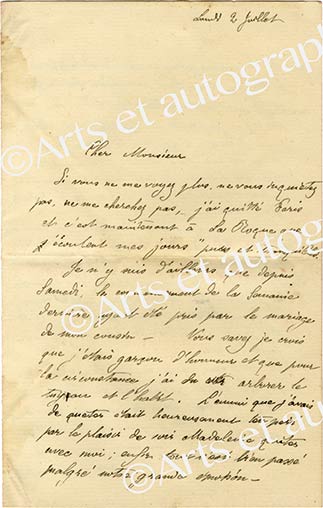 Lundi 2 Juillet
Cher Monsieur
Si vous ne me voyez plus, ne vous inquiétez
pas, ne me cherchez pas, j'ai quitté Paris
et c'est maintenant à La Roque que
s'écoulent mes jours "purs et
Je n'y suis d'ailleurs que depuis
Samedi, le commencement de la Semaine
dernière ayant été pris par le mariage
de mon cousin — Vous savez je crois
que j'étais garçon d'honneur et que pour
la circonstance j'ai dû arborer le
et l'habit. L'ennui que j'avais
de quêter était heureusement
par le plaisir de voir Madeleine quêter
avec moi ; enfin tout s'est bien passé
malgré notre grande émotion —
©Arts et autographes
©Arts et autographes
©Arts et autographes